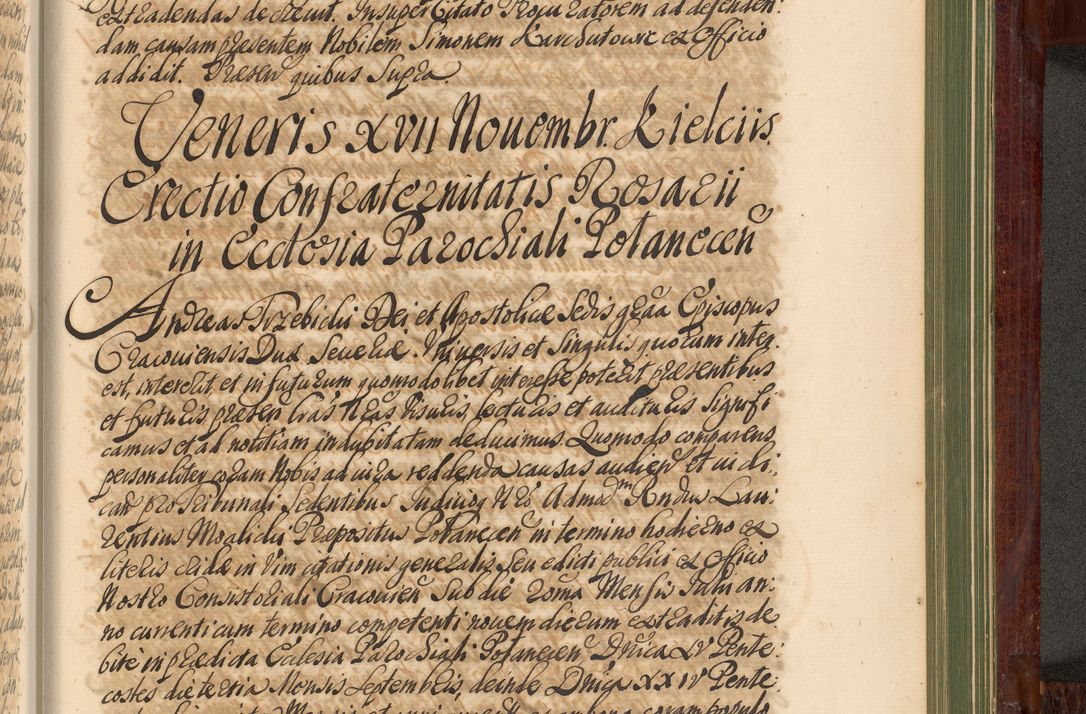 extradendas decrevit. Insuper Citato Procuratorem ad defenden:
dam causam praesentem Nobilem Simonem Karchutowic ex Officio
addidit. Praesen quibus Supra
Veneris XVII Nouembr. Kielciis.
Erectio Confraternitatis Rosarii
in Ecclesia Parochiali Potanecen
Andreas Trzebicki Dei et Apostolicae Sedis graa Episcopus
Cracouiensis Dux Seueriae. Vniuersis et Singulis quorum inter.
est, intererit et in futurum quomodolibet interesse poterit praesentibus
et futuris praesen lras nras visuris, lecturis et audituris Signifi
camus et ad notitiam indubitatam deducimus. Quomodo comparens
personaliter coram Nobis ad iura reddenda causas audien et iudi
can pro Tribunali Sedentibus Iudicioq Nro Admod Rndus Lau:
rentius Moalicki Praepositus Potanecen in termino hodierno ex
literis cridae in Vim citationis generalis, seu edicti publici ex Officio
Nostro Consistoriali Cracouien Sub die 20ma Mensis Iulii an:
no currenti cum termino competenti nouem dierum extraditis de
bite in praedicta Ecclesia Parochiali Potanecen Dnica XV Pente:
costes die tertia Mensis Septembris, deinde Dnica XXIV Pente